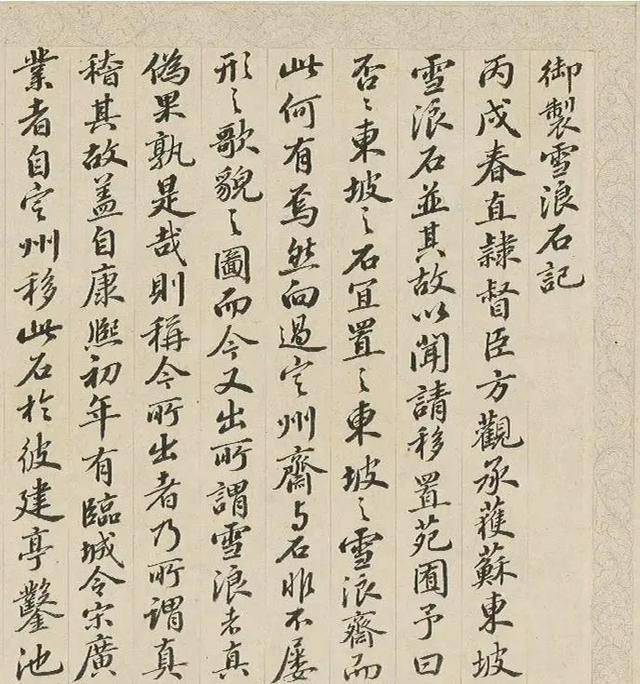 御製雪浪石記
丙戌春直隸督臣方觀承蒦蘇東坡
雪浪石並其故以聞請移置苑囿予曰
否〻東坡之石宜置之東坡之雪浪齋而
此何有焉然向過定州齋与石非不屡
形之歌貌之圖而今又出所謂雪浪者真
偽果孰是哉則稱今所出者乃所謂真
稽其故盖自康熙初年有臨城令宋廣
業者自定州移此石於彼建亭鑿池